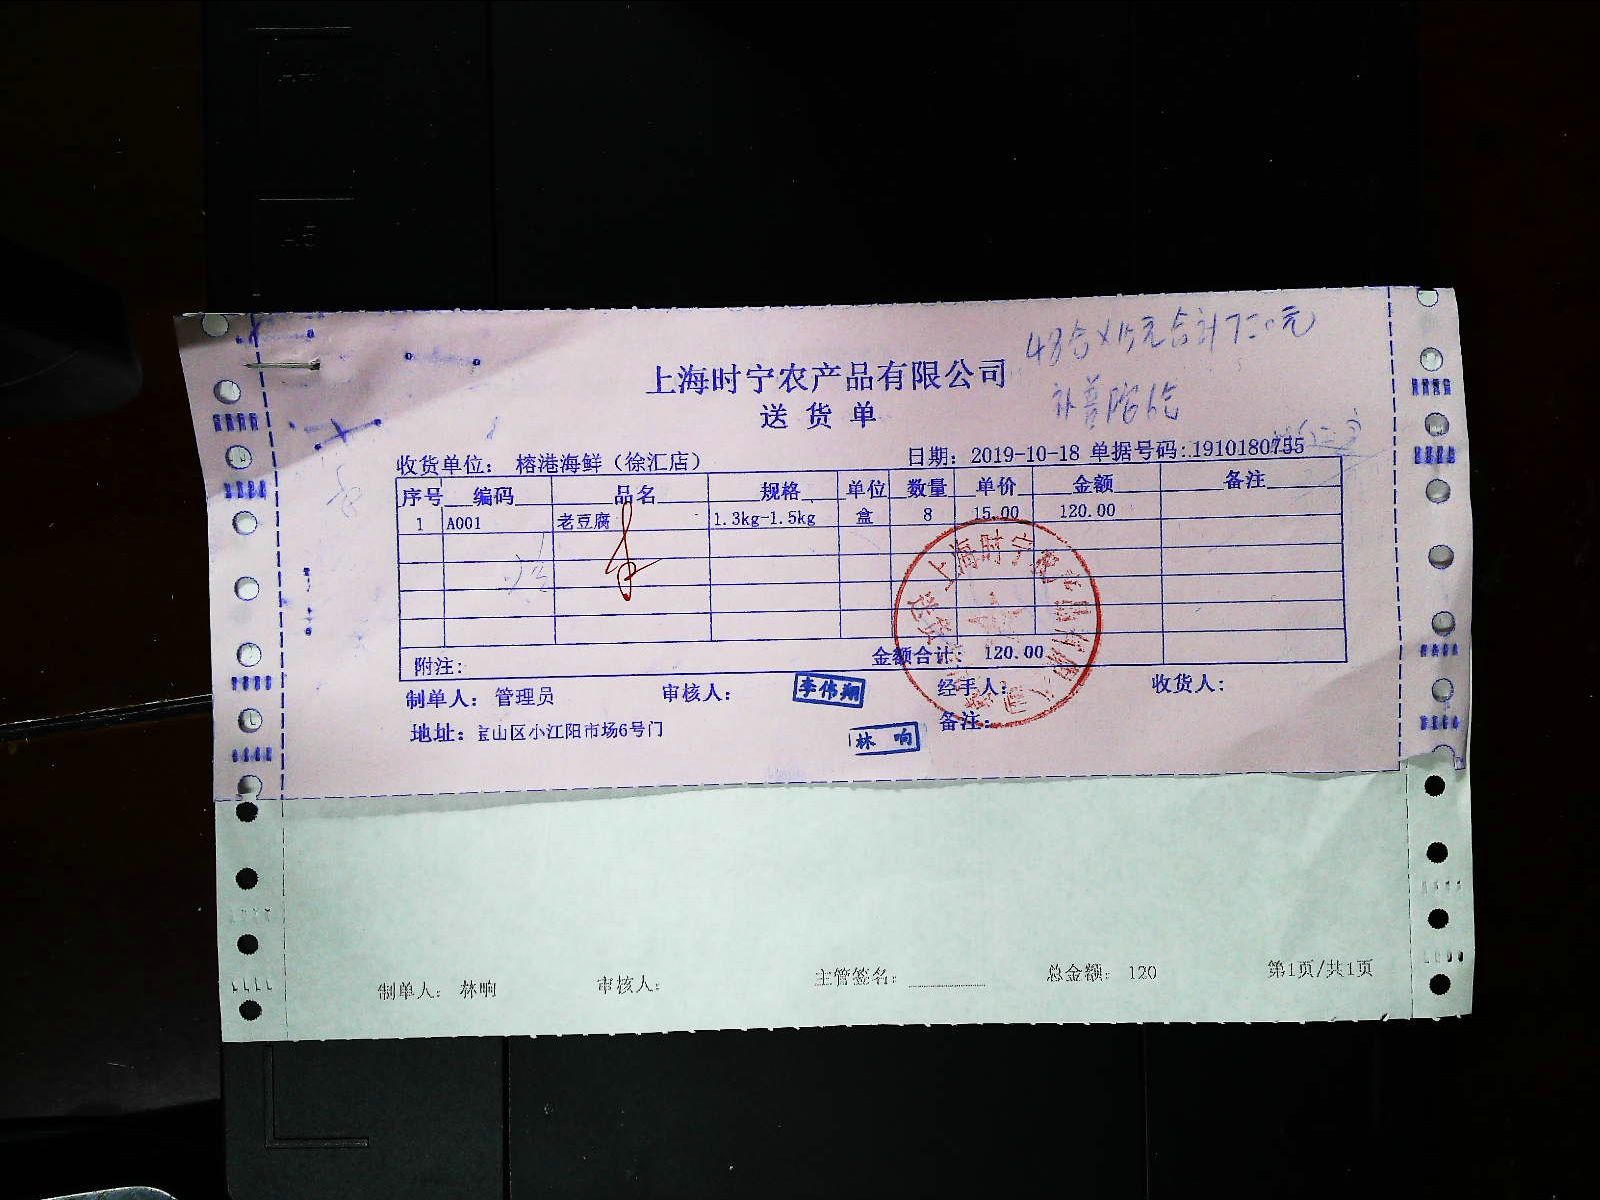 48合×15元合计720元
上海时宁农产品有限公司
送货单
收货单位: 榕港海鲜（徐汇店） 日期: 2019-10-18 单据号码: 1910180755
序号 编码 品名 规格 单位 数量 单价 金额 备注
1 A001 老豆腐 1.3kg-1.5kg 盒 8 15.00 120.00
附注: 金额合计: 120.00
制单人: 管理员 审核人: 李伟翔 经手人: 收货人:
地址: 宝山区小江阳市场6号门 林响 备注:
上海时宁
送货
制单人: 林响 审核人: 主管签名: 总金额: 120 第1页/共1页